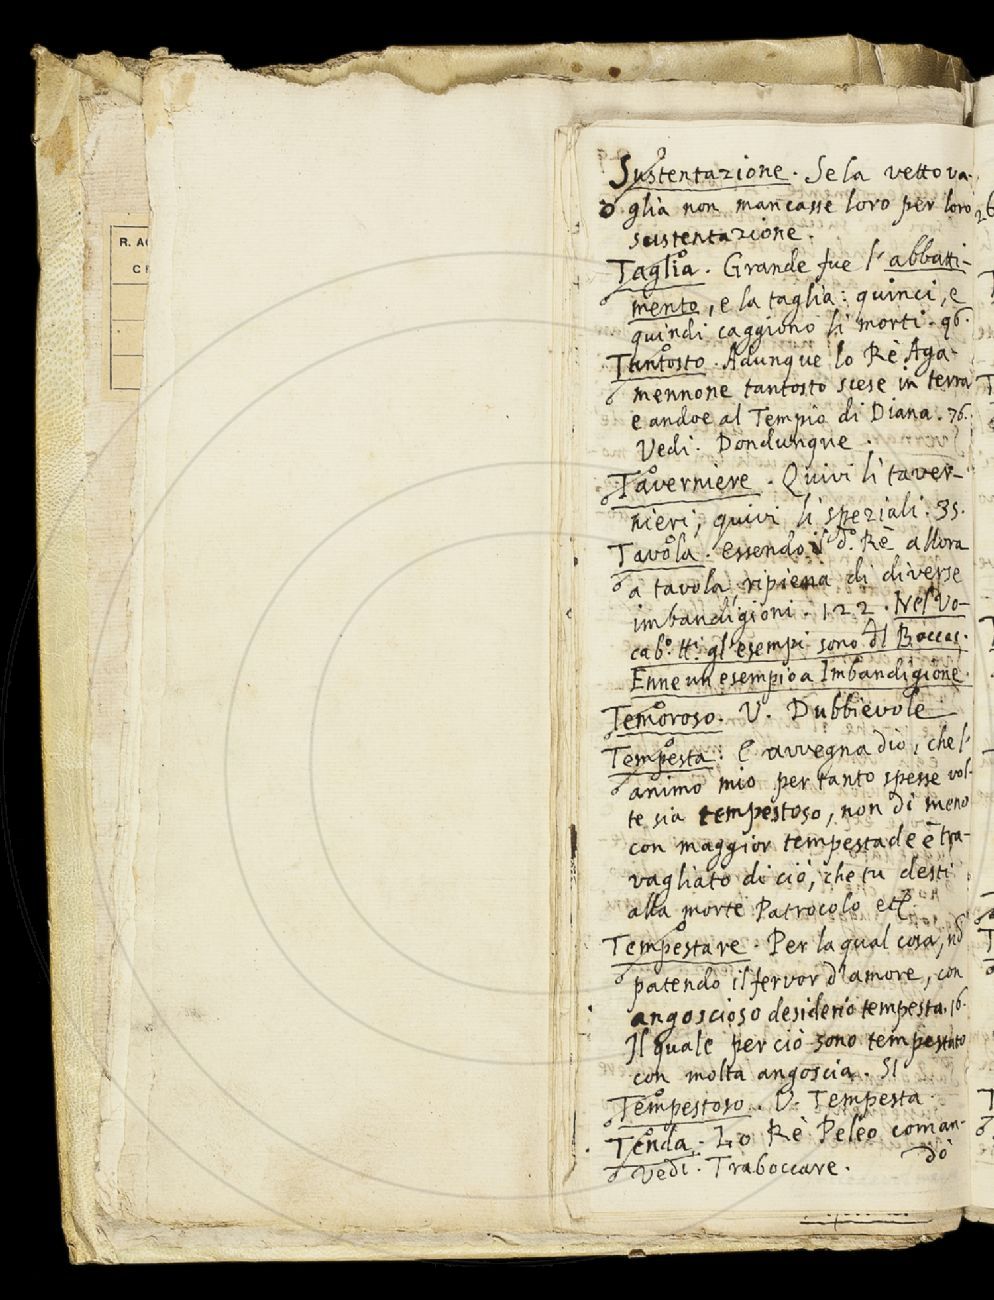 R. AC
C
Sustentazione. Se la vettova-
glia non mancasse loro per loro
sustentazione.
Taglia. Grande fue l'abbatti-
mento, e la taglia: quinci, e
quindi caggiono li morti. 96.
Tantosto. Adunque lo Rè Aga-
mennone tantosto scese in terra
e andoe al Tempio di Diana. 76.
Vedi. Dondunque.
Taverniere. Quivi li taver-
nieri, quivi li speziali. 35.
Tavola. essendo il d.º Rè allora
a tavola, ripiena di diverse
imbandigioni. 122. Nel Vo-
cab.º gl'esempi sono del Boccac.
Enne un esempio a Imbandigione.
Temoroso. V. Dubbievole
Tempesta. E avvegna dio, che l'
animo mio per tanto spesse vol-
te sia tempestoso, non di meno
con maggior tempestade è tra-
vagliato di ciò, che tu desti
alla morte Patrocolo etc.
Tempestare. Per la qual cosa, nō
patendo il fervor d'amore, con
angoscioso desiderio tempesta. 16.
Il quale per ciò sono tempestato
con molta angoscia. 51
Tempestoso. V. Tempesta.
Tenda. Lo Rè Peleo coman-
dò
Vedi. Traboccare.